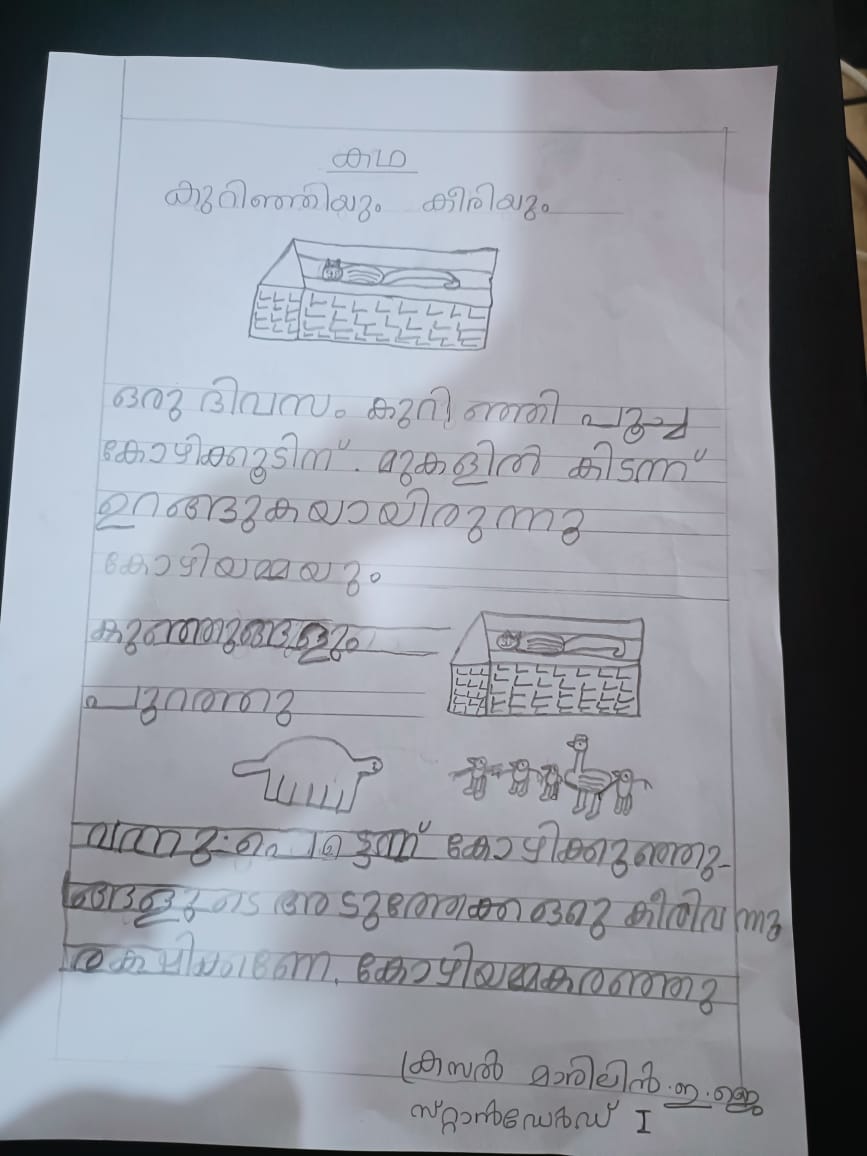 കഥ
കുറിഞ്ഞിയും കീരിയും
ഒരു ദിവസം കുറിഞ്ഞി പൂച്ച
കോഴിക്കൂടിന്. മുകളിൽ കിടന്ന്
ഉറങ്ങുകയായിരുന്നു
കോഴിയമ്മയും
കുഞ്ഞുങ്ങളും
പുറത്തു
വന്നു. പെട്ടന്ന് കോഴിക്കുഞ്ഞു-
ങ്ങളുടെ അടുത്തേക്ക ഒരു കീരിവന്നു
രക്ഷിക്കണേ. കോഴിയമ്മകരഞ്ഞു
ക്രിസൽ മാരിലിൻ. ഇ. ജെ
സ്റ്റാൻഡേർഡ് I